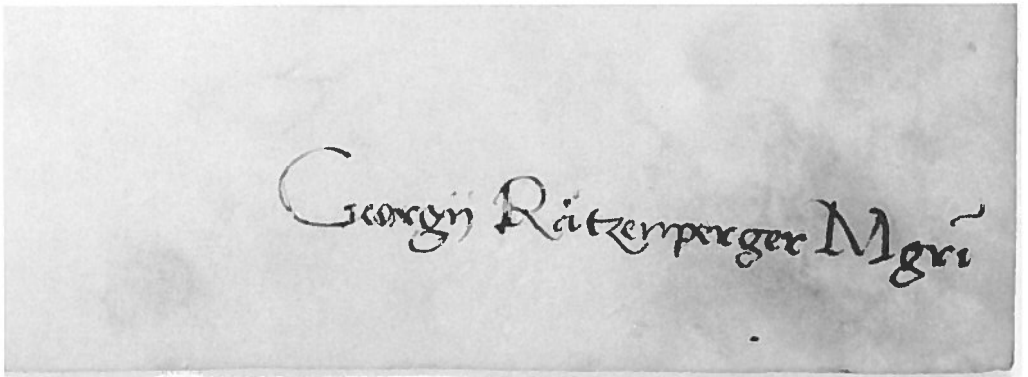 Georgij Rätzenperger Mgrī